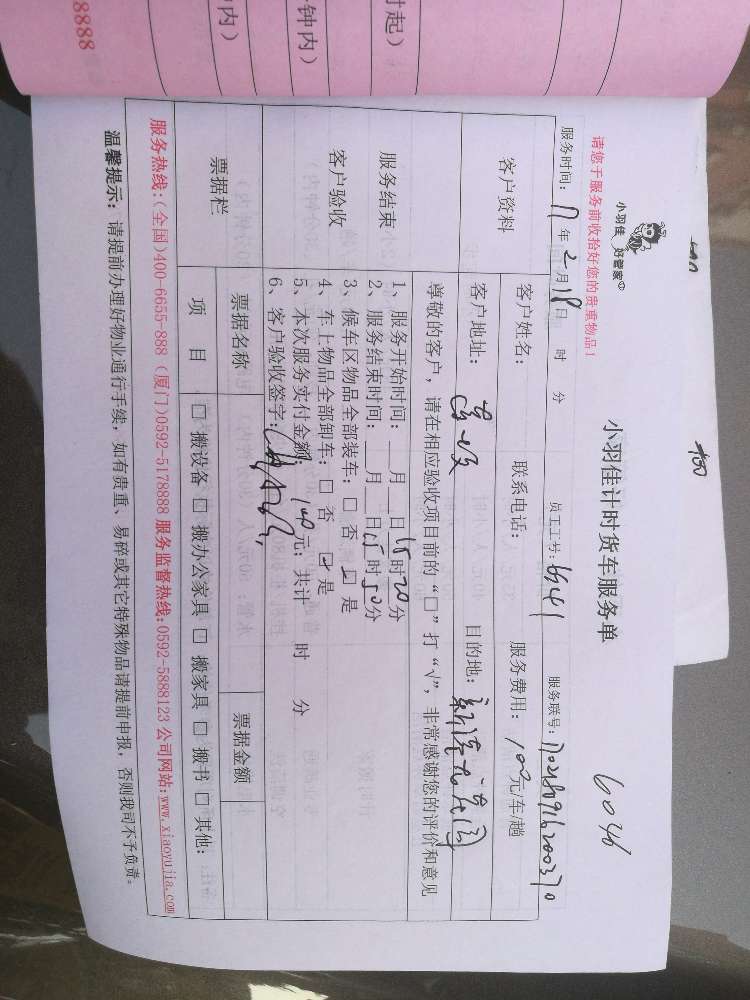 8888
钟内）
时起）
请您于服务前收拾好您的贵重物品！
小羽佳 好管家
小羽佳计时货车服务单
6046
服务时间：17年2月18日 时 分 员工工号： 服务联号：
客户资料
客户姓名： 联系电话： 服务费用：100元/车/趟
客户地址： 目的地：
尊敬的客户，请在相应验收项目前的“□”打“√”，非常感谢您的评价和意见
服务结束
客户验收
1、服务开始时间：__月__日15时20分
2、服务结束时间：__月__日15时50分
3、候车区物品全部装车：□ 否 ☑ 是
4、车上物品全部卸车：□ 否 ☑ 是
5、本次服务实付金额：100元；共计 时 分
6、客户验收签字：
票据栏
票据名称 票据金额
项 目 □ 搬设备 □ 搬办公家具 □ 搬家具 □ 搬书 □ 其他：
服务热线：（全国）400-6655-888（厦门）0592-5178888 服务监督热线：0592-5888123 公司网站：www.xiaoyujia.com
温馨提示：请提前办理好物业通行手续，如有贵重、易碎或其它特殊物品请提前申报，否则我司不予负责。